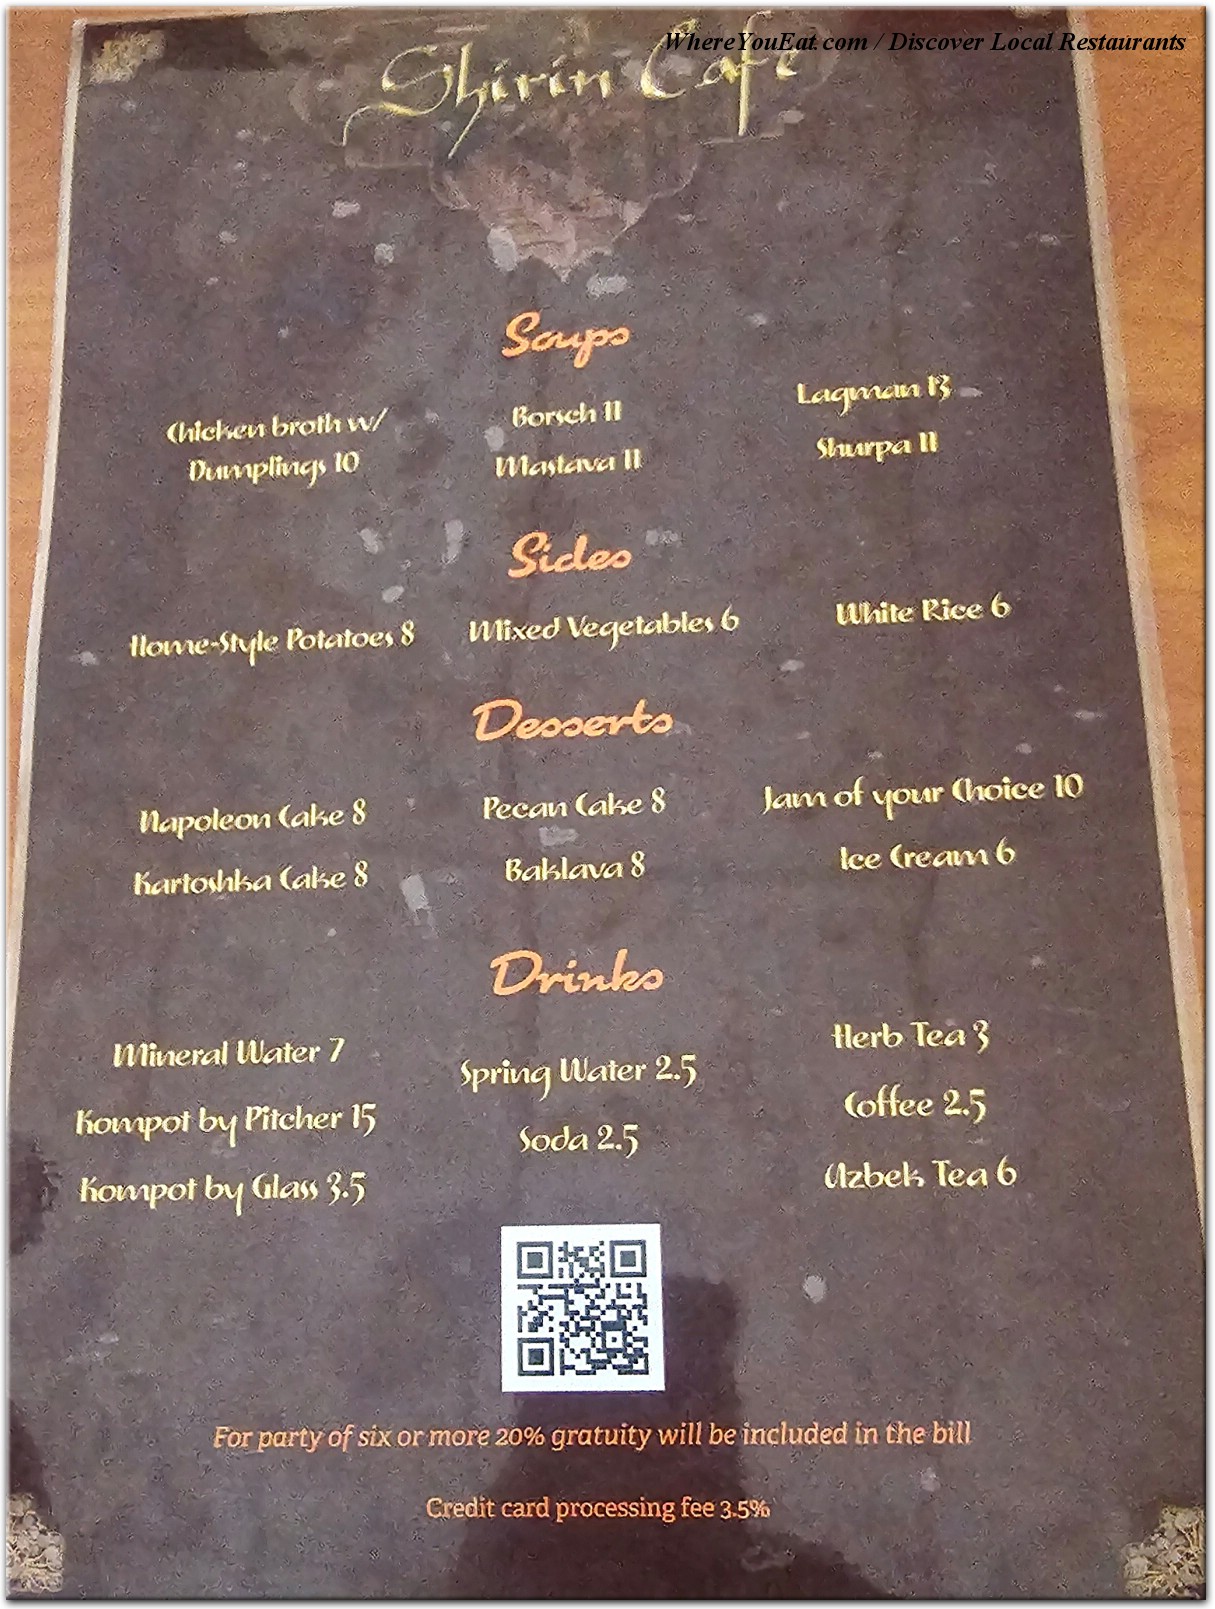 WhereYouEat.com / Discover Local Restaurants
Shirin Cafe
Soups
Chicken broth w/
Dumplings 10
Borsch 11
Mastava 11
Lagman 13
Shurpa 11
Sides
Home-Style Potatoes 8
Mixed Vegetables 6
White Rice 6
Desserts
Napoleon Cake 8
Kartoshka Cake 8
Pecan Cake 8
Baklava 8
Jam of your Choice 10
Ice Cream 6
Drinks
Mineral Water 7
Kompot by Pitcher 15
Kompot by Glass 3.5
Spring Water 2.5
Soda 2.5
Herb Tea 3
Coffee 2.5
Uzbek Tea 6
For party of six or more 20% gratuity will be included in the bill
Credit card processing fee 3.5%